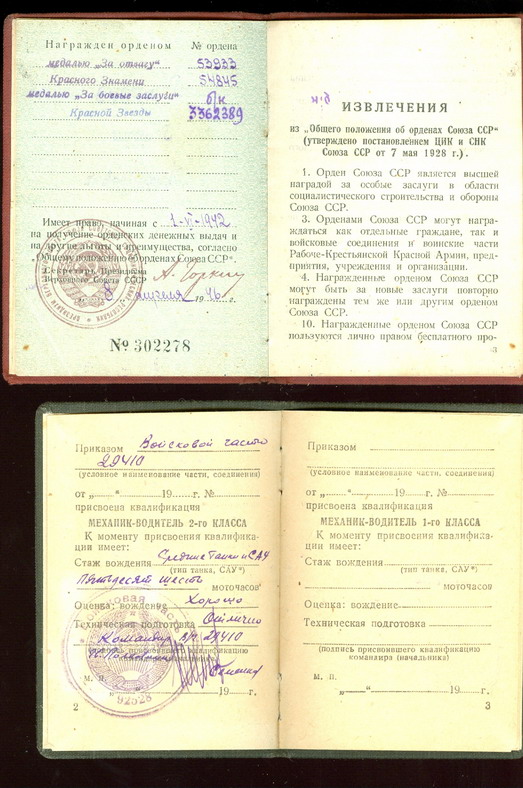 Награжден орденом № ордена
медалью „За отвагу" 53933
Красного Знамени 54845
медалью „За боевые заслуги" б/н
Красной Звезды 3362389
Имеет право, начиная с 1-VI-1942
на получение орденских денежных выдач и
на другие льготы и преимущества, согласно
„Общему положению об орденах Союза ССР".
Секретарь Президиума
Верховного Совета СССР А. Горкин
апреля 1946 г.
№ 302278
ИЗВЛЕЧЕНИЯ
из „Общего положения об орденах Союза ССР"
(утверждено постановлением ЦИК и СНК
Союза ССР от 7 мая 1928 г.).
1. Орден Союза ССР является высшей
наградой за особые заслуги в области
социалистического строительства и обороны
Союза ССР.
3. Орденами Союза ССР могут награ-
ждаться как отдельные граждане, так и
войсковые соединения и воинские части
Рабоче-Крестьянской Красной Армии, пред-
приятия, учреждения и организации.
4. Награжденные орденом Союза ССР
могут быть за новые заслуги повторно
награждены тем же или другим орденом
Союза ССР.
10. Награжденные орденом Союза ССР
пользуются лично правом бесплатного про-
3
Приказом Войсковой части
29410
(условное наименование части, соединения)
от „ " 19 г. №
присвоена квалификация
МЕХАНИК-ВОДИТЕЛЬ 2-го КЛАССА
К моменту присвоения квалифика-
ции имеет:
Стаж вождения Средние танки и САУ
(тип танка, САУ*)
Пятьдесят шесть моточасов
Оценка: вождение Хорошо
Техническая подготовка Отлично
Командир в/ч 29410
(подпись присвоившего квалификацию
м. п.
„ " 19 г.
92528
2
Приказом
(условное наименование части, соединения)
от „ " 19 г. №
присвоена квалификация
МЕХАНИК-ВОДИТЕЛЬ 1-го КЛАССА
К моменту присвоения квалифика-
ции имеет:
Стаж вождения
(тип танка, САУ*)
моточасов
Оценка: вождение
Техническая подготовка
(подпись присвоившего квалификацию
командира (начальника)
м. п.
„ " 19 г.
3